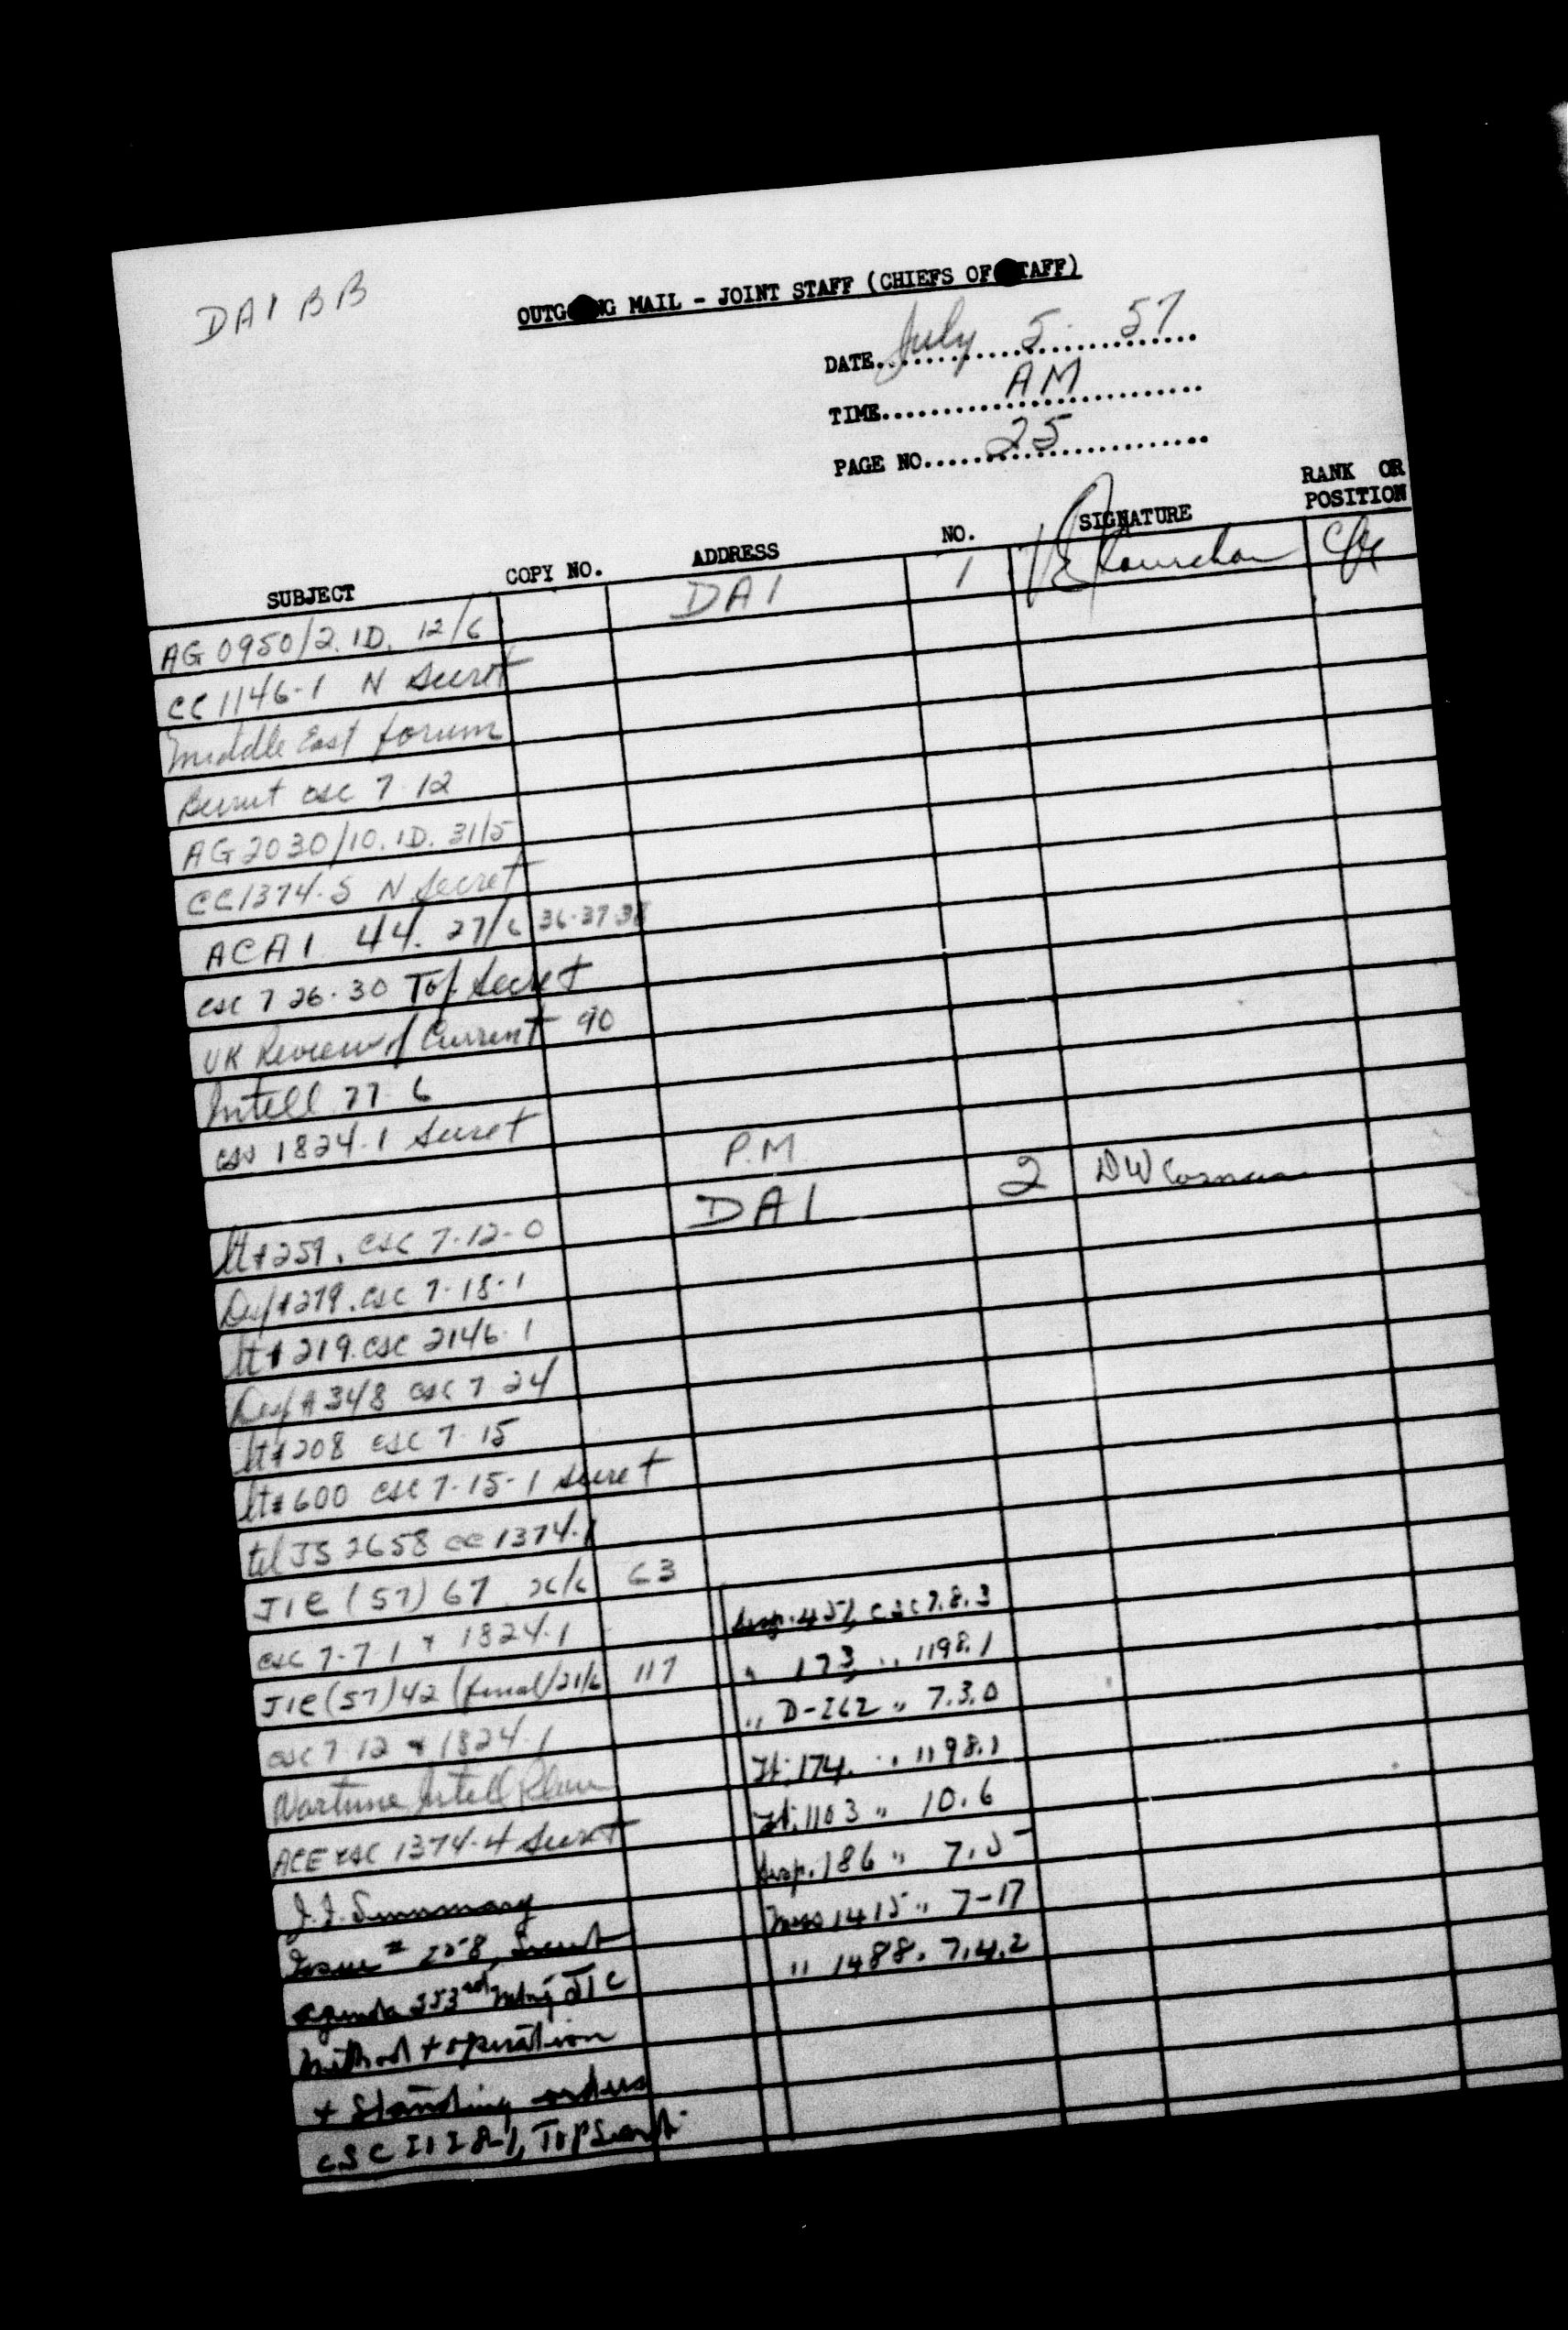 DAI BB
OUTG NG MAIL - JOINT STAFF (CHIEFS OF TAFF)
DATE July 5 57
TIME AM
PAGE NO. 25
SUBJECT COPY NO. ADDRESS NO. SIGNATURE RANK OR POSITION
AG 0950/2. ID. 12/6 DAI 1
CC 1146-1 N Secret
Middle East forum
Beirut csc 7-12
AG 2030/10. ID. 31/5
CC1374-5 N Secret
ACAI 44. 27/6 36-37-38
csc 7 26-30 Top Secret
UK Review of Current 90
Intell 77-6
1824-1 Secret P.M.
DAI 2
lt #259. csc 7-12-0
Des #279. csc 7-18-1
lt # 219. csc 2146-1
348 csc 7-24
lt #208 csc 7-15
lt # 600 csc 7-15-1 secret
tel JS 2658 cc 1374-1
JIC (57) 67 26/6 63
csc 7-7-1 + 1824-1 451, csc 7.8.3
JIC (57) 42 (final) 21/6 117 " 173 " 1198.1
csc 7-12 + 1824-1 " D-262 " 7.3.0
Wartime Intell Plan lt. 174. " 1198.1
ACE csc 1374-4 Secret lt. 1103 " 10.6
J.I. Summary desp. 186 " 7.5
Issue # 258, Secret 1415 " 7-17
agenda 353rd mtng JIC " 1488. 7.4.2
method + operation
+ Standing orders
CSC Top Secret